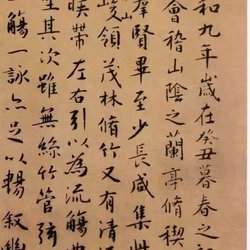 和九年歲在癸丑暮春之
會稽山陰之蘭亭脩稧
羣賢畢至少長咸集此
峻領茂林脩竹又有清
暎帶左右引以為流觴
坐其次雖無絲竹管弦
觴一詠亦足以暢敘幽